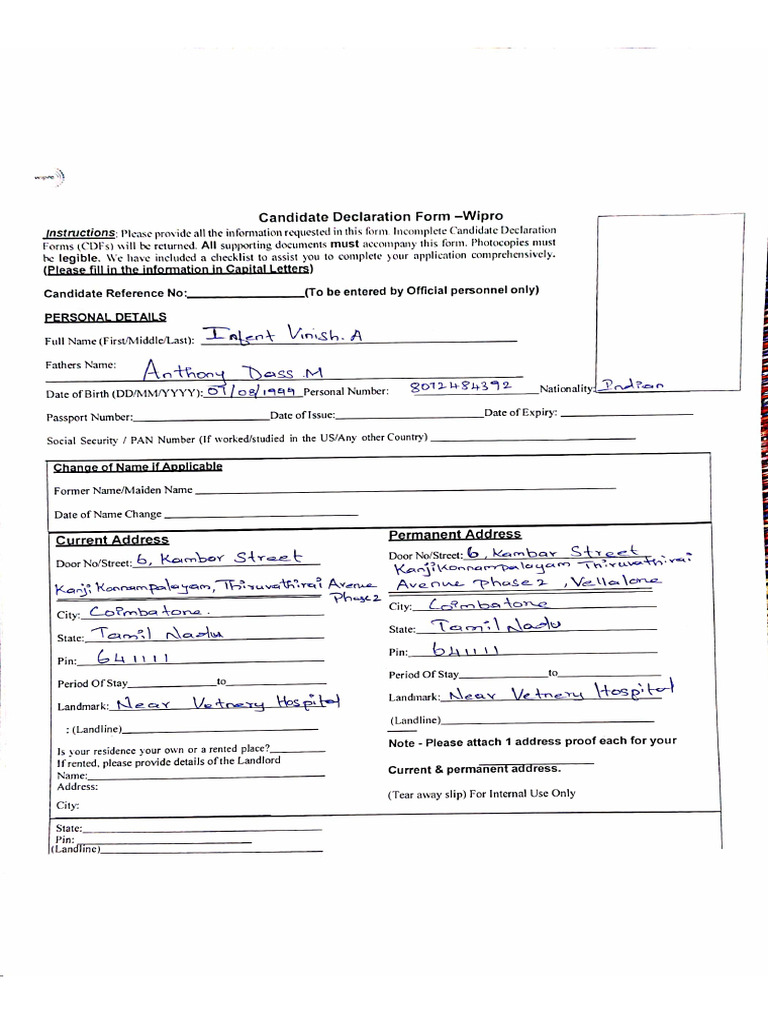 wipro
Candidate Declaration Form –Wipro
Instructions: Please provide all the information requested in this form. Incomplete Candidate Declaration
Forms (CDFs) will be returned. All supporting documents must accompany this form. Photocopies must
be legible. We have included a checklist to assist you to complete your application comprehensively.
(Please fill in the information in Capital Letters)
Candidate Reference No:____________________(To be entered by Official personnel only)
PERSONAL DETAILS
Full Name (First/Middle/Last): Infent Vinish. A
Fathers Name: Anthony Dass .M
Date of Birth (DD/MM/YYYY): 07/08/1999 Personal Number: 8072484392 Nationality: Indian
Passport Number:____________________Date of Issue:____________________Date of Expiry:____________________
Social Security / PAN Number (If worked/studied in the US/Any other Country)____________________
Change of Name if Applicable
Former Name/Maiden Name____________________
Date of Name Change____________________
Current Address
Door No/Street: 6, Kambar Street
Kanji Konnampalayam, Thiruvathirai Avenue
Phase 2
City: Coimbatone.
State: Tamil Nadu
Pin: 641111
Period Of Stay____________________to____________________
Landmark: Near Vetnery Hospital
: (Landline)____________________
Is your residence your own or a rented place?____________________
If rented, please provide details of the Landlord
Name:____________________
Address:
City:
State:____________________
Pin:____________________
(Landline)____________________
Permanent Address
Door No/Street: 6, Kambar Street
Kanji Konnampalayam Thiruvathirai
Avenue Phase 2 , Vellalone
City: Coimbatone
State: Tamil Nadu
Pin: 641111
Period Of Stay____________________to____________________
Landmark: Near Vetnery Hospital
(Landline)____________________
Note - Please attach 1 address proof each for your
Current & permanent address.
(Tear away slip) For Internal Use Only